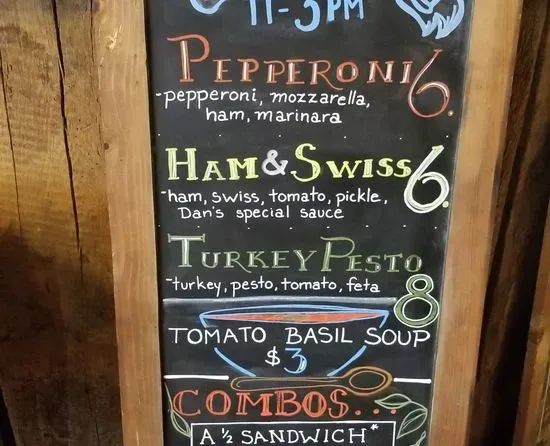 11-3PM
PEPPERONI 6.
-pepperoni, mozzarella,
ham, marinara
HAM & SWISS 6.
-ham, swiss, tomato, pickle,
Dan's special sauce
TURKEY PESTO
-turkey, pesto, tomato, feta
8
TOMATO BASIL SOUP
$3
COMBOS...
A ½ SANDWICH*